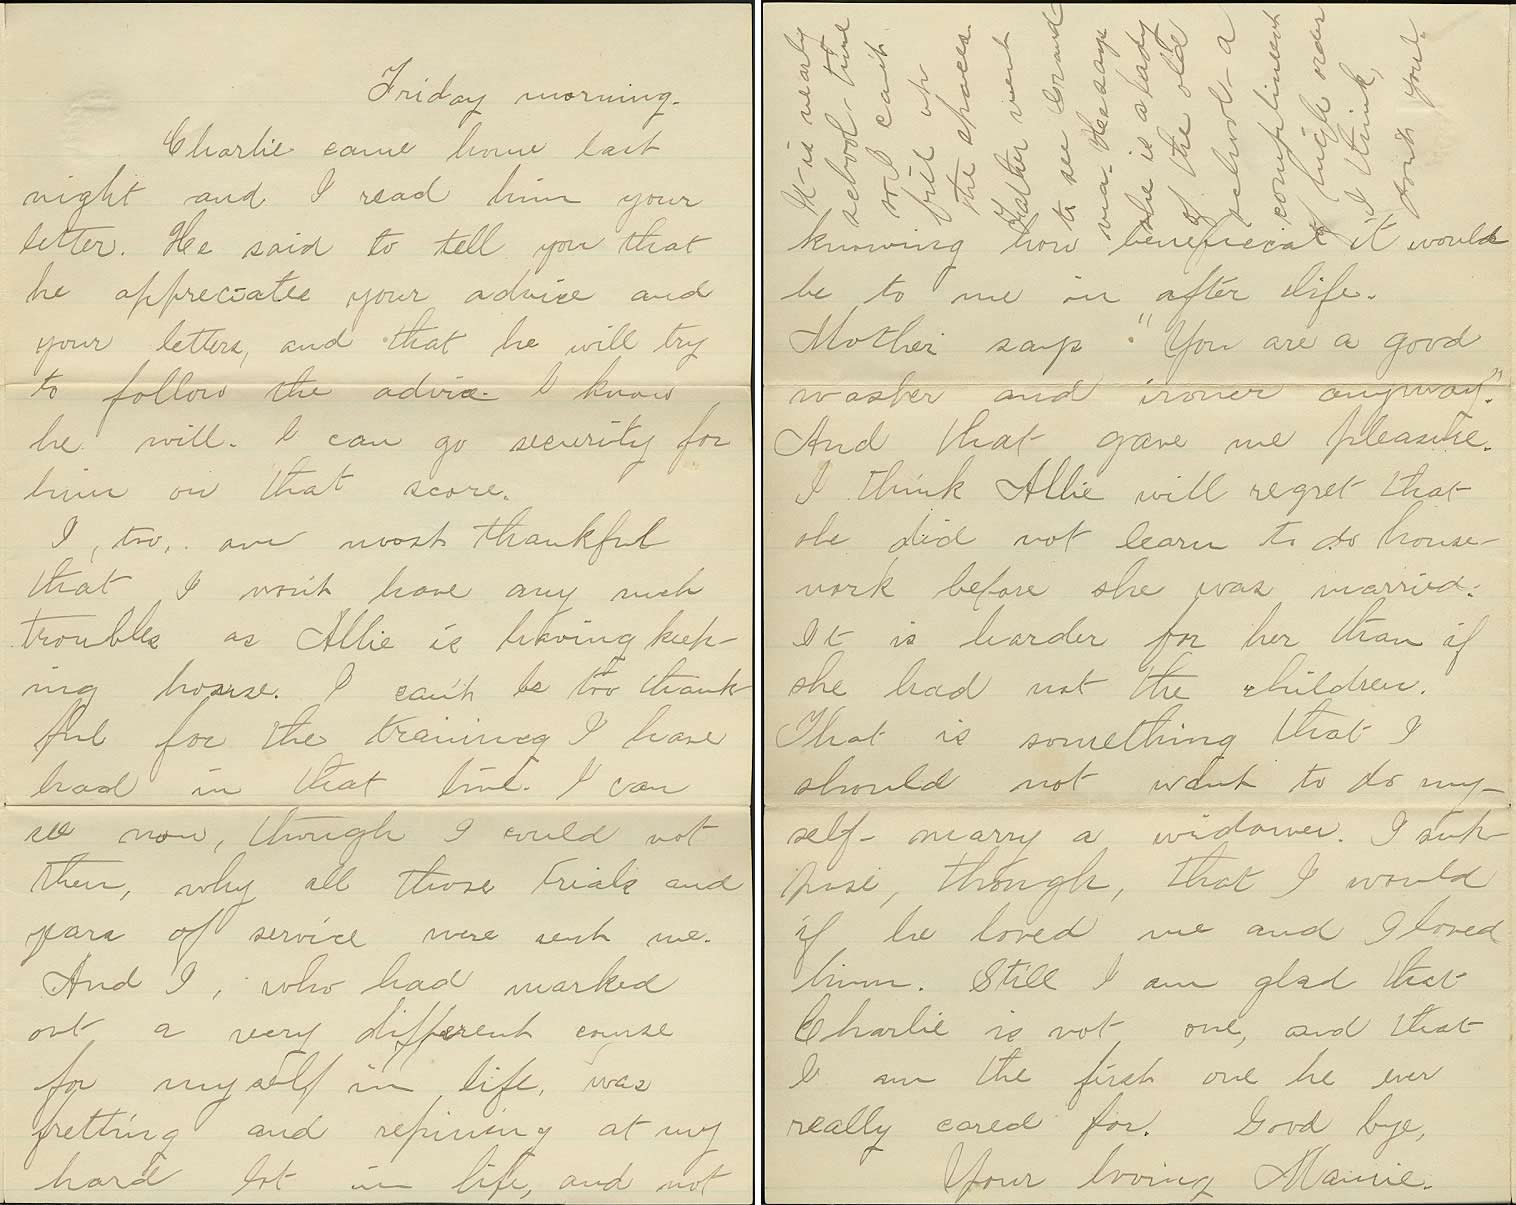 Friday morning.
Charlie came home last
night and I read him your
letter. He said to tell you that
he appreciates your advice and
your letters, and that he will try
to follow the advice. I know
he will. I can go security for
him on that score.
I, too, am most thankful
that I won't have any such
troubles as Allie is having keep-
ing house. I can't be too thank-
ful for the training I have
had in that line. I can
see now, though I could not
then, why all those trials and
years of service were sent me.
And I, who had marked
out a very different course
for myself in life, was
fretting and repining at my
hard lot in life, and not
knowing how beneficial it would
be to me in after life.
Mother says "You are a good
washer and ironer anyway."
And that gave me pleasure.
I think Allie will regret that
she did not learn to do house-
work before she was married.
It is harder for her than if
she had not the children.
That is something that I
should not want to do my-
self - marry a widower. I sup-
pose, though, that I would
if he loved me and I loved
him. Still I am glad that
Charlie is not one, and that
I am the first one he ever
really cared for. Good bye,
Your loving Mamie.
It is nearly
school-time
so I can't
fill up
the spaces.
Father went
to see Grand
ma. He says
she is a lady
of the old
school - a
compliment
of high order
I think,
don't you?